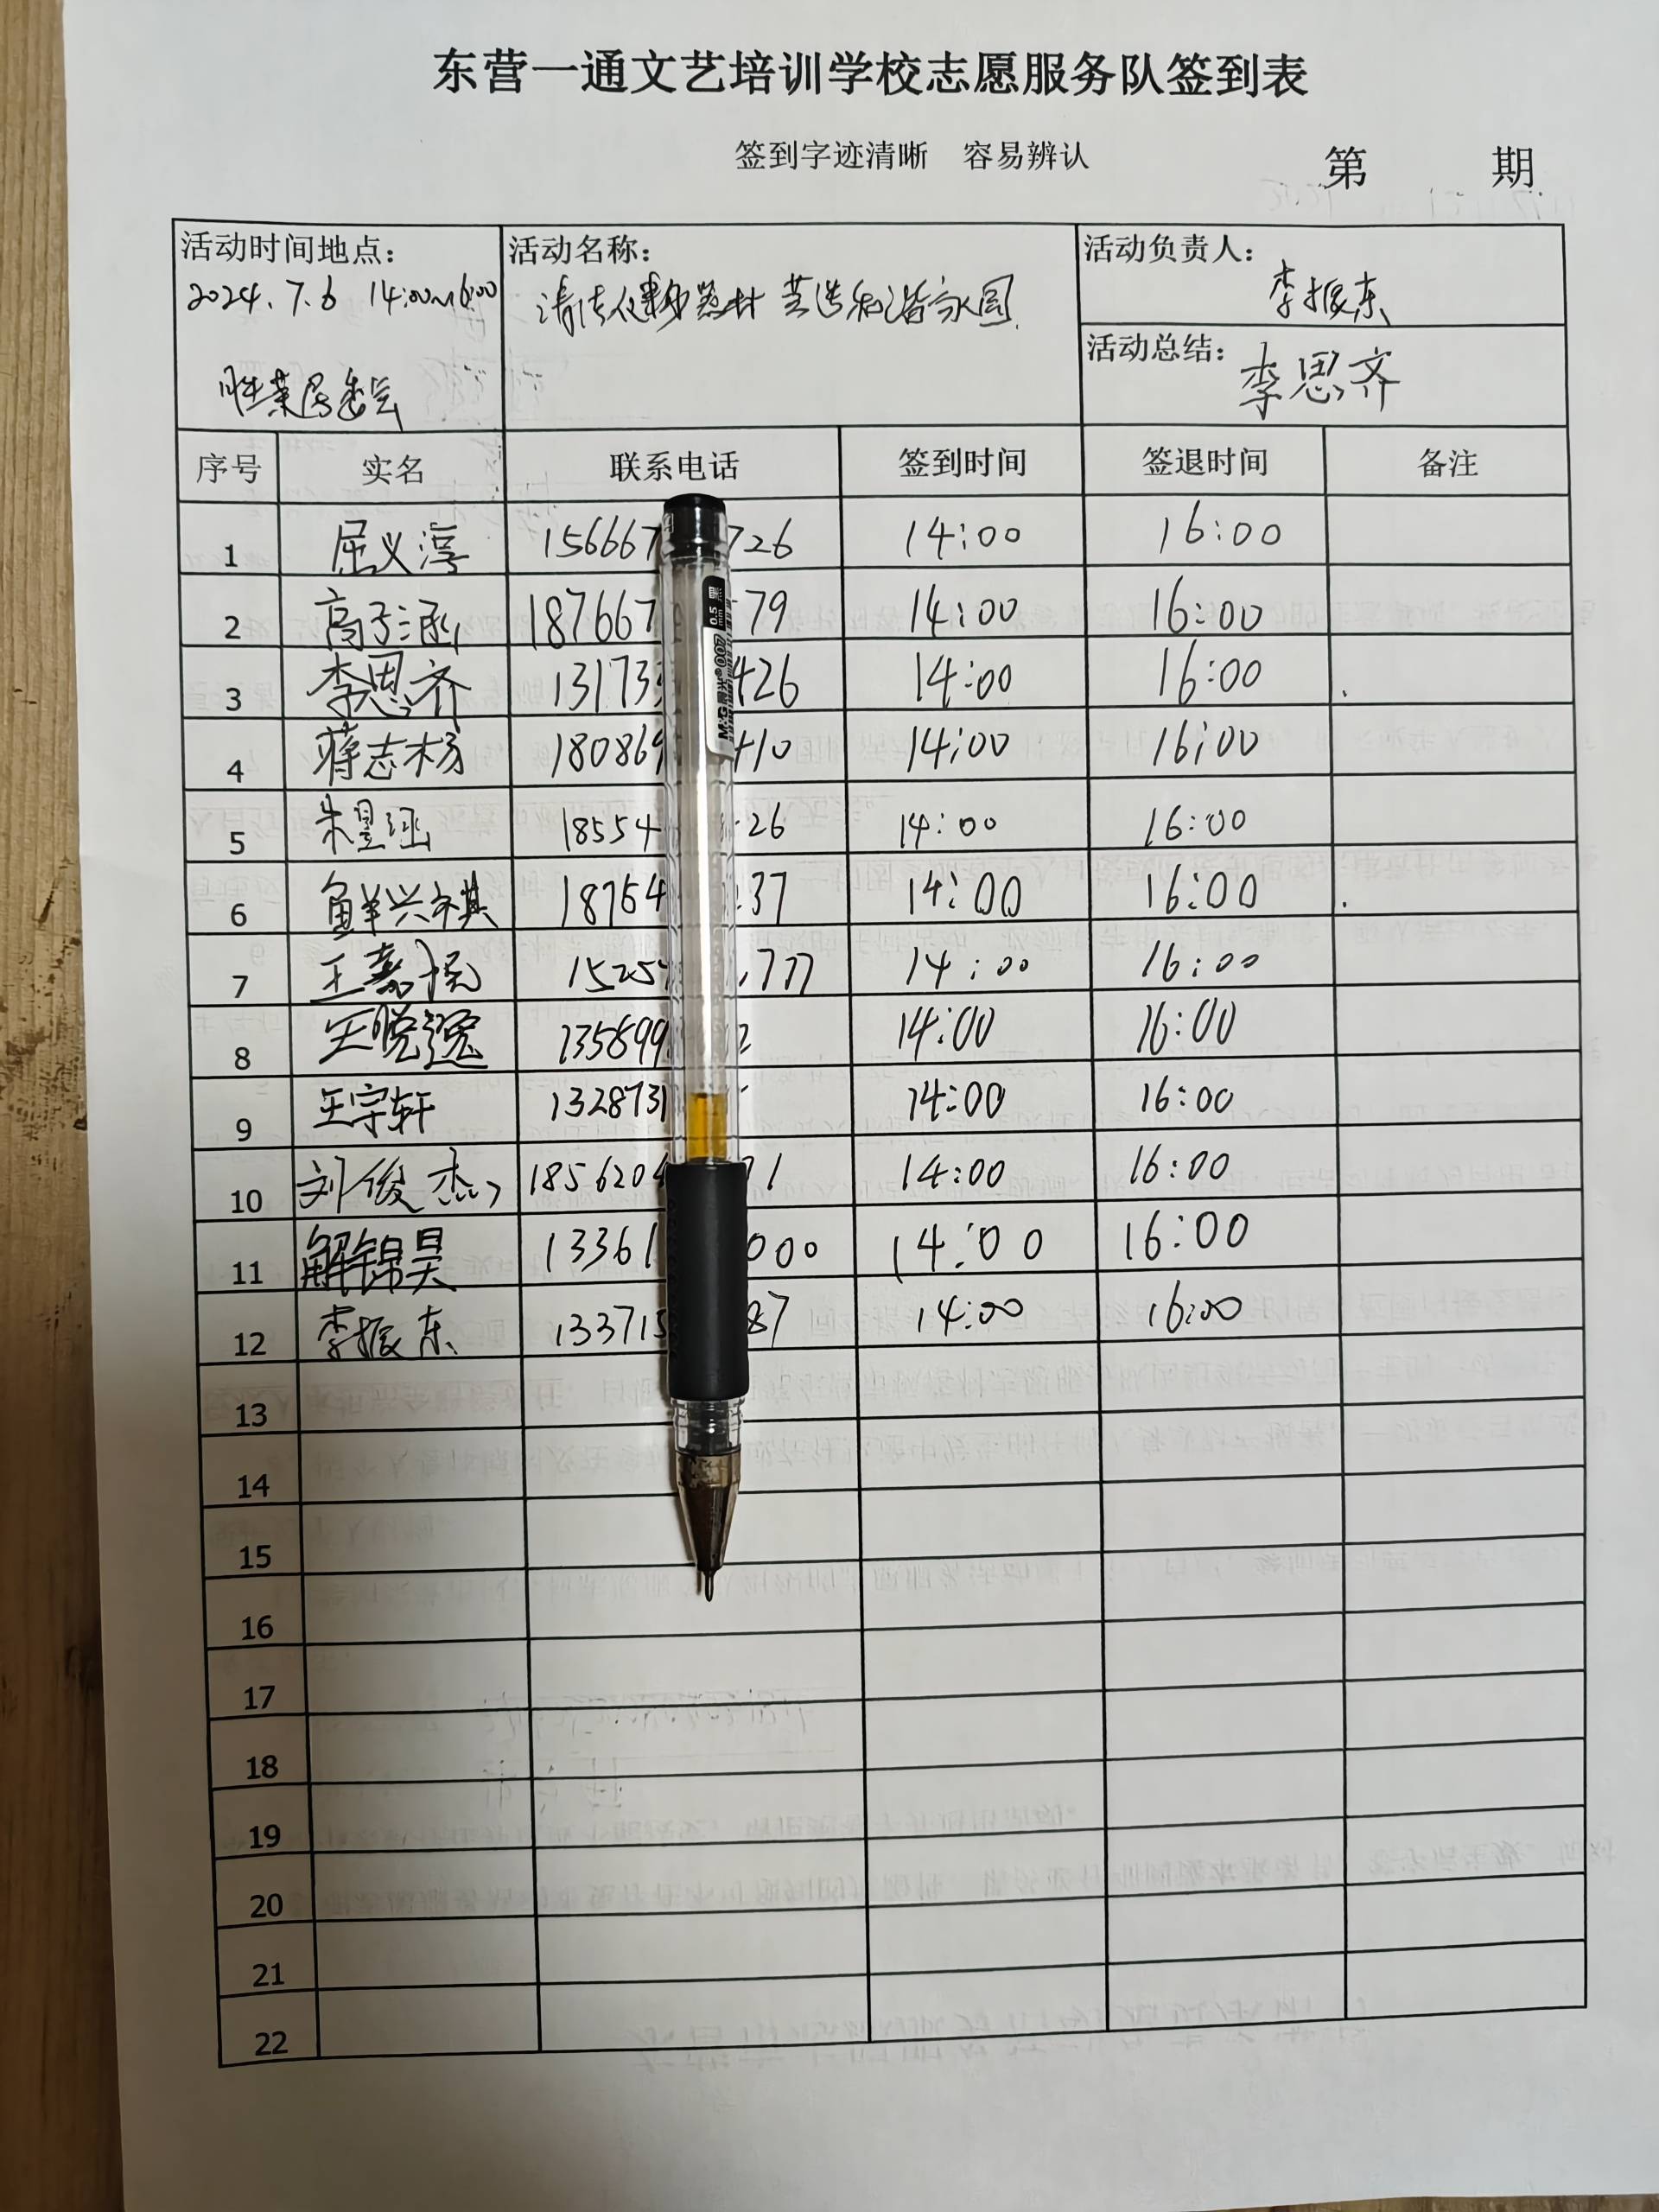 东营一通文艺培训学校志愿服务队签到表
签到字迹清晰 容易辨认
第 期
活动时间地点：
2024.7.6 14:00~16:00
胜莱居委会
活动名称：
共造和谐家园
活动负责人：
李振东
活动总结：李思齐
序号 实名 联系电话 签到时间 签退时间 备注
1 屈义淳 156667 726 14:00 16:00
2 高子涵 187667 79 14:00 16:00
3 李思齐 13173 426 14:00 16:00
4 蒋志杨 180869 410 14:00 16:00
5 朱昱 18554 26 14:00 16:00
6 鲜兴祺 18764 37 14:00 16:00
7 王嘉 1525 777 14:00 16:00
8 王晓逸 135899 2 14:00 16:00
9 王宇轩 1328731 14:00 16:00
10 刘俊杰 185620 1 14:00 16:00
11 解锦昊 13361 000 14:00 16:00
12 李振东 133715 87 14:00 16:00
13
14
15
16
17
18
19
20
21
22
0.5 mm 黑
M&G晨光®007